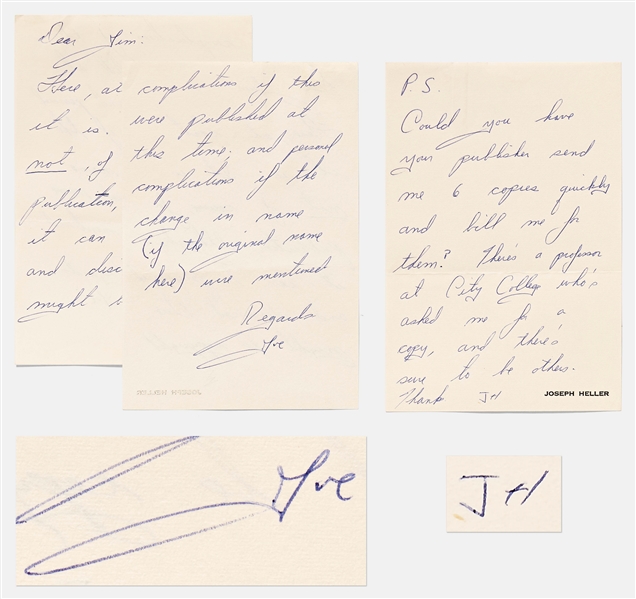 Dear Jim:
Here, at
it is.
not, of
publication,
it can
and disc
might
complications if this
were published at
this time. and personal
complications if the
change in name
(if the original name
here) were mentioned
Regards
Joe
P.S.
Could you have
your publisher send
me 6 copies quickly
and bill me for
them? There's a professor
at City College who's
asked me for a
copy, and there's
sure to be others.
Thank JH
JOSEPH HELLER
Joe
JH